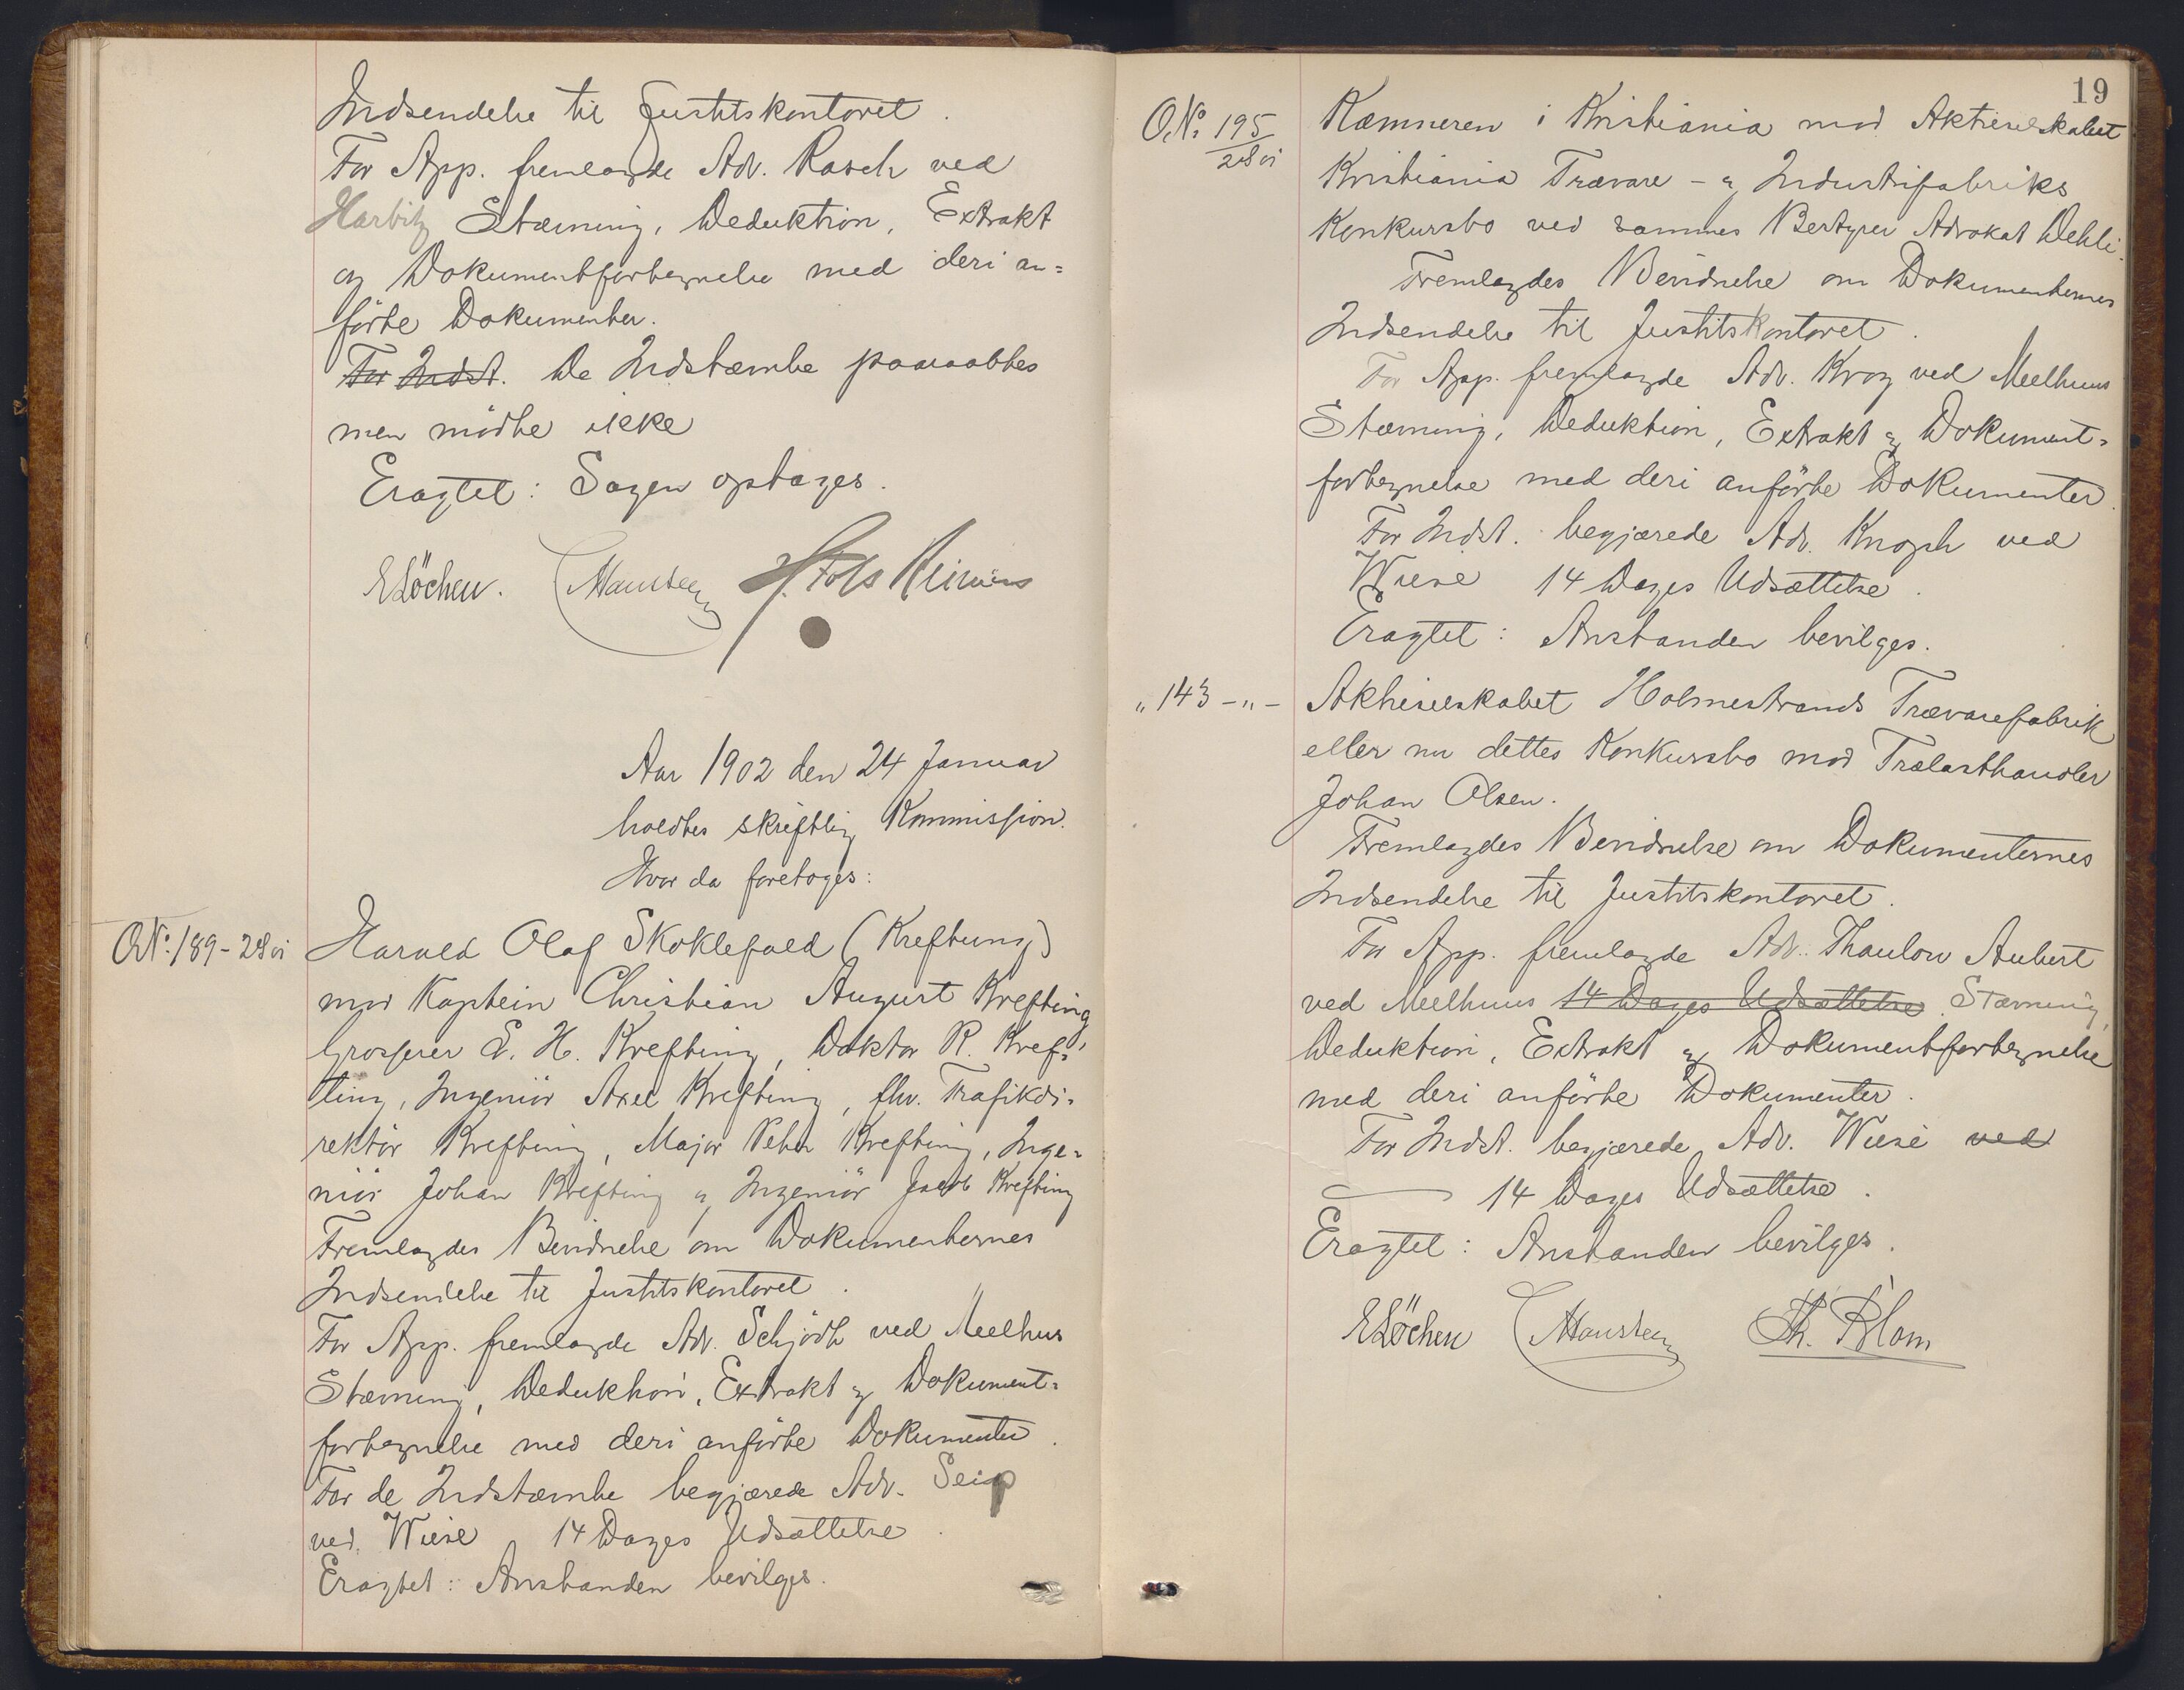 Indsendelse til Justitskontoret.
For App. fremlagde Adv. Rasch ved
Harbitz Stævning, Deduktion, Extrakt
og Dokumentfortegnelse med deri an=
förte Dokumenter.
For Indst. De Indstævnte paaraabtes
men mödte ikke
Eragtet: Sagen optages.
E Löchen.
Aar 1902 den 24 Januar
holdtes skriftlig Kommission.
Hvor da foretoges:
O.N.º 189-28 vi Harald Olaf Skoklefald (Krefting)
mod Kaptein Christian August Krefting
Grosserer E. H. Krefting, Doktor R. Kref=
ting, Ingeniör Axel Krefting, fhv. Trafikdi=
rektör Krefting, Major Peter Krefting, Inge=
niör Johan Krefting og Ingeniör Jacob Krefting
Fremlagdes Bevidnelse om Dokumenternes
Indsendelse til Justitskontoret.
For App. fremlagde Adv. Schjödt ved Meelhus
Stævning, Deduktion, Extrakt og Dokument=
fortegnelse med deri anförte Dokumenter.
For de Indstævnte begjærede Adv. Seip
ved Wiese 14 Dages Udsættelse.
Eragtet: Anstanden bevilges.
19
O.Nº 195/28 vi Kæmneren i Kristiania mod Aktieselskabet
Kristiania Trævare- og Industrifabriks
Konkursbo ved sammes Bestyrer Advokat Dehli.
Fremlagdes Bevidnelse om Dokumenternes
Indsendelse til Justitskontoret.
For App. fremlagde Adv. Krog ved Meelhuus
Stævning, Deduktion, Extrakt og Dokument=
fortegnelse med deri anförte Dokumenter.
For Indst. begjærede Adv. Knoph ved
Wiese 14 Dages Udsættelse.
Eragtet: Anstanden bevilges.
„ 143 -„- Aktieselskabet Holmestrands Trævarefabrik
eller nu dettes Konkursbo mod Trælasthandler
Johan Olsen.
Fremlagdes Bevidnelse om Dokumenternes
Indsendelse til Justitskontoret.
For App. fremlagde Adv. Thaulow Aubert
ved Meelhuus 14 Dages Udsættelse Stævning,
Deduktion, Extrakt og Dokumentfortegnelse
med deri anförte Dokumenter.
For Indst. begjærede Adv. Wiese ved
14 Dages Udsættelse.
Eragtet: Anstanden bevilges.
E Löchen Th. Blom